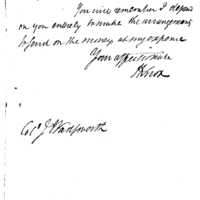 You will remember I depend
on you entirely to make the arrangements
to send on the money at my expence
Your affectionate
HKnox
Col J Wadsworth